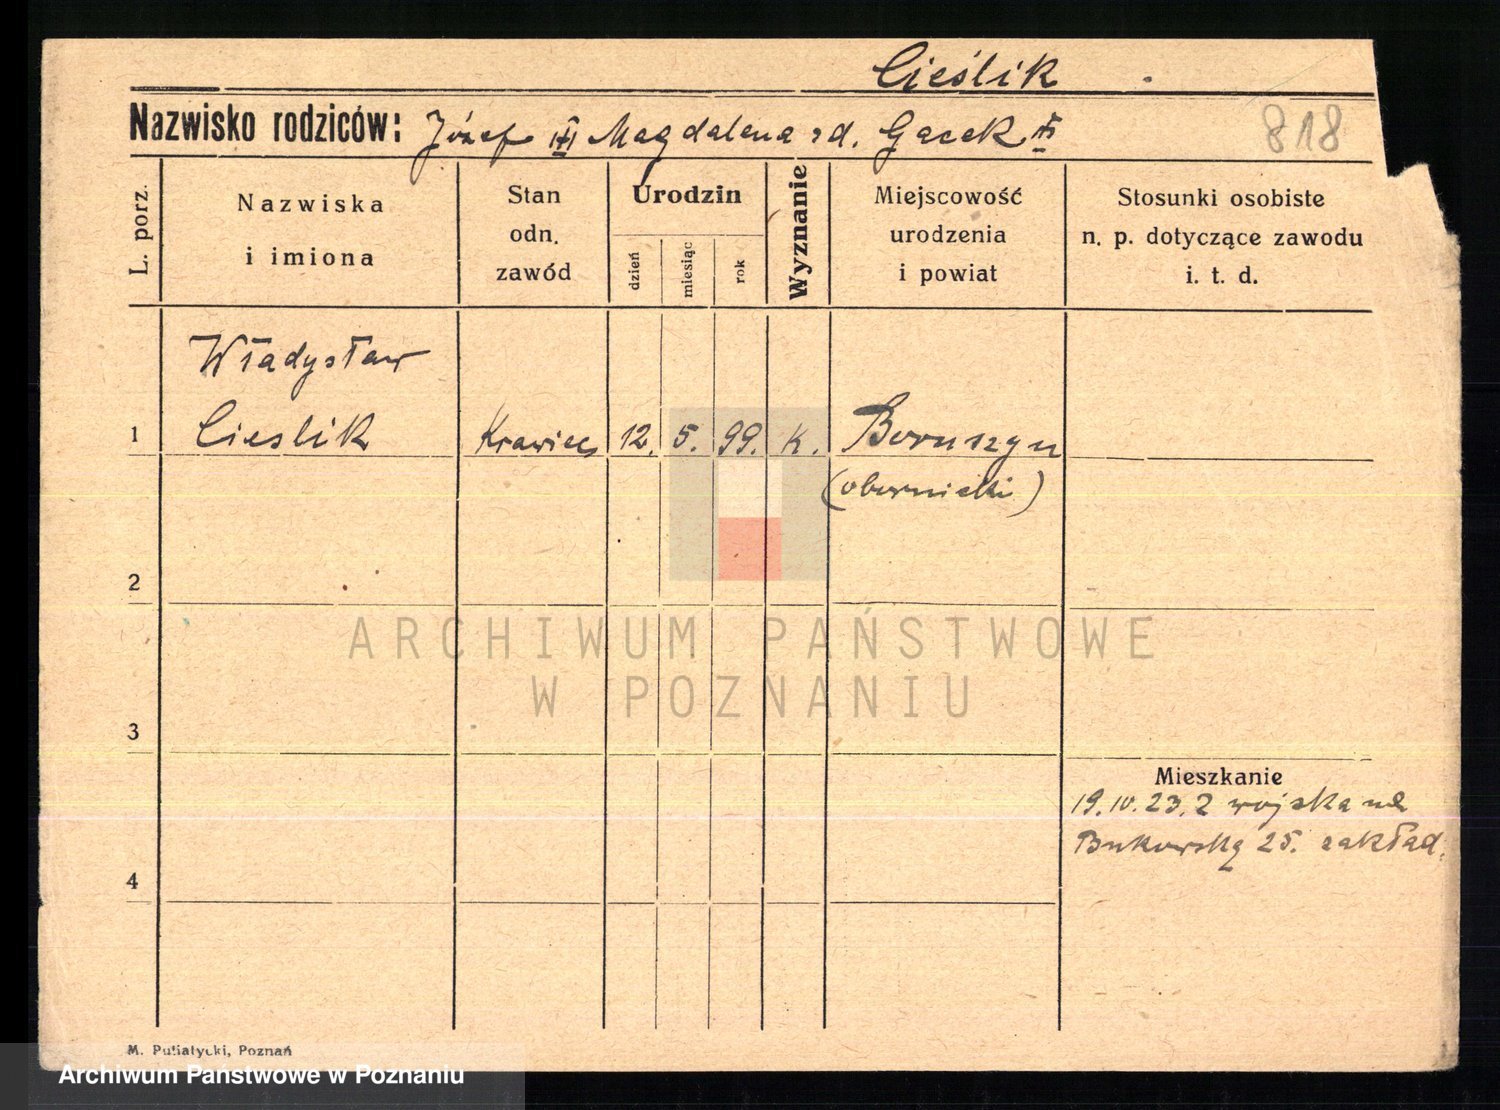 Cieślik
Nazwisko rodziców: Józef Magdalena rd. Gacek
818
L. porz.
Nazwiska
i imiona
Stan
odn.
zawód
Urodzin
dzień
miesiąc
rok
Wyznanie
Miejscowość
urodzenia
i powiat
Stosunki osobiste
n. p. dotyczące zawodu
i. t. d.
Władysław
1 Cieslik Krawiec 12. 5. 99. k. Boruszyn
(obornicki)
2
ARCHIWUM PAŃSTWOWE
W POZNANIU
3
Mieszkanie
19.IV.23. z wojska na
Bukowską 25. zakład.
4
M. Putiatycki, Poznań
Archiwum Państwowe w Poznaniu